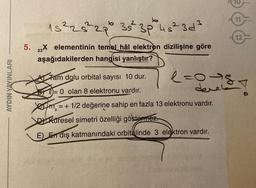 10
11
12
1s² 2s² 2p⁶ 3s² 3p⁶ 4s² 3d³
5. ₂₃X elementinin temel hâl elektron dizilişine göre
aşağıdakilerden hangisi yanlıştır?
A) Tam dolu orbital sayısı 10 dur.
l=0 → s
B) l = 0 olan 8 elektronu vardır.
C) mₛ = + 1/2 değerine sahip en fazla 13 elektronu vardır.
D) Küresel simetri özelliği göstermez.
E) En dış katmanındaki orbitalinde 3 elektron vardır.
AYDIN YAYINLARI